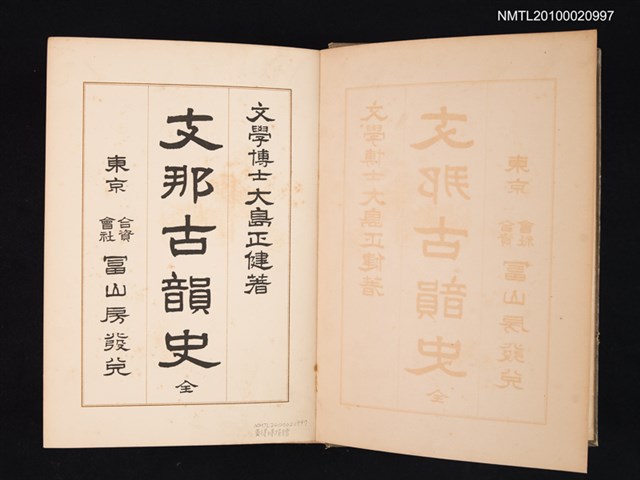 NMTL20100020997
文學博士大島正健著
支那古韻史 全
東京 合資會社 冨山房發兌
NMTL20100020997